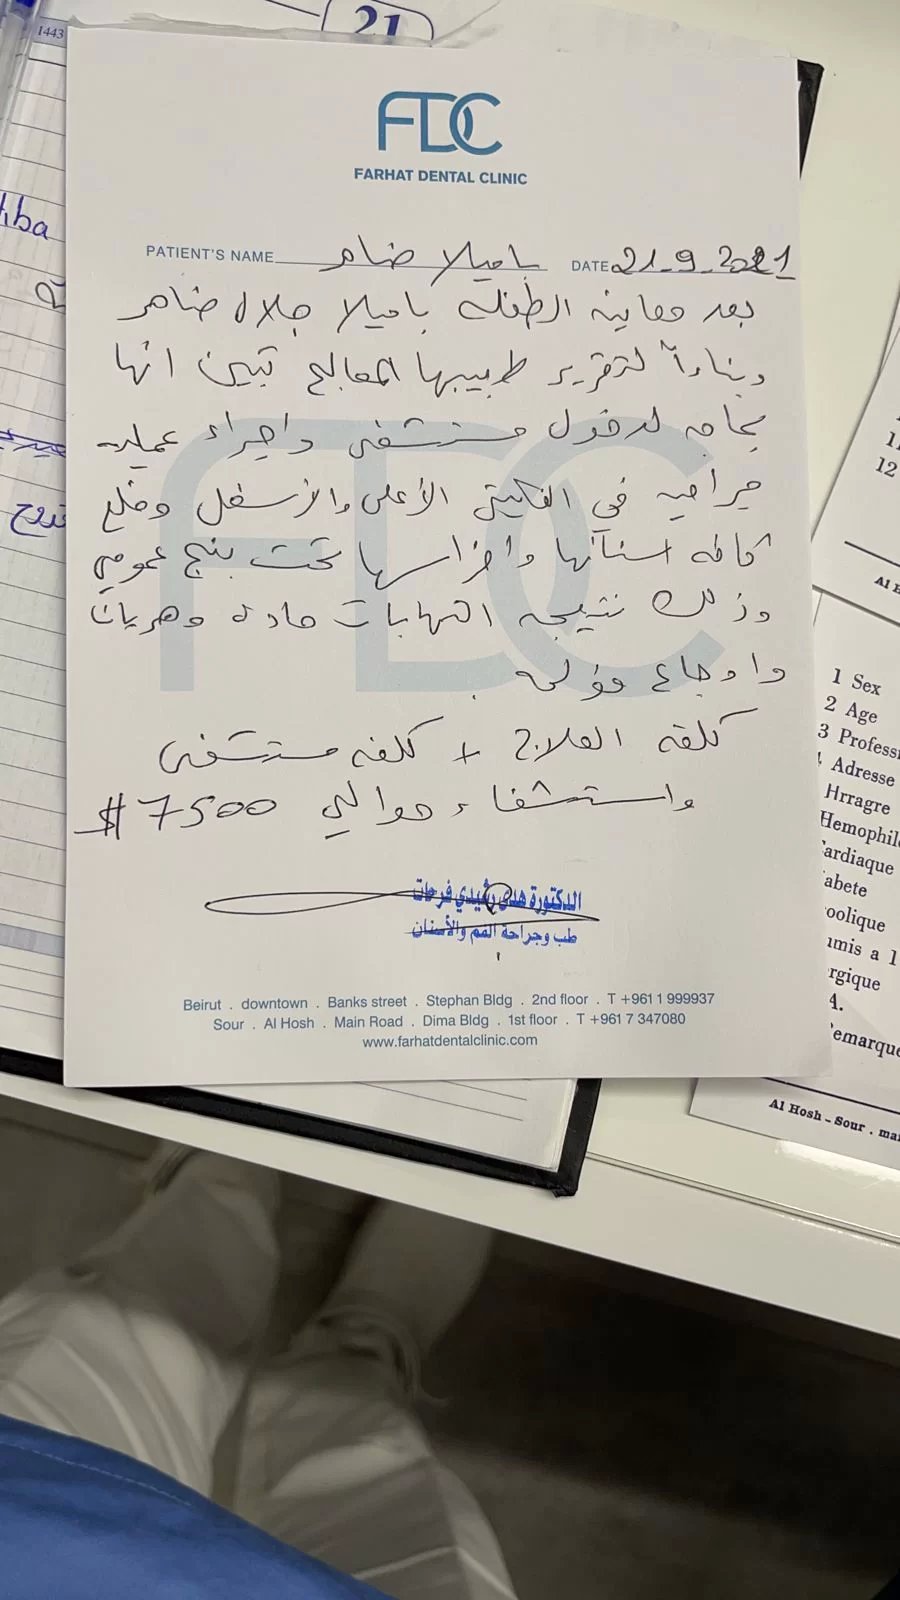 21
1443
FDC
FARHAT DENTAL CLINIC
PATIENT'S NAME باميلا ضاهر DATE 21-9-2021
بعد معاينه الطفله باميلا جلال ضاهر
وبناءاً لتقرير طبيبها المعالج تبين انها
بحاجه لدخول مستشفى واجراء عمليه
جراحيه في الفكين الأعلى والأسفل وخلع
كافه اسنانها واضراسها تحت بنج عمومي
وذلك نتيجه التهابات حاده وهريان
واوجاع مؤلمه .
كلفه العلاج + كلفه مستشفى
واستشفاء حوالي 7500 $
الدكتورة هدى رشيدي فرحات
طب وجراحة الفم والأسنان
Beirut . downtown . Banks street . Stephan Bldg . 2nd floor . T +961 1 999937
Sour . Al Hosh . Main Road . Dima Bldg . 1st floor . T +961 7 347080
www.farhatdentalclinic.com
12
1 Sex
2 Age
3 Profess
Adresse
Hrragre
Hemophil
ardiaque
abete
oolique
umis a l
rgique
A.
emarque
Al Hosh - Sour . mai